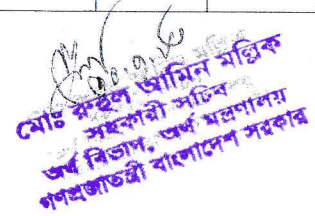 মোঃ রুহুল আমিন মল্লিক
সহকারী সচিব
অর্থ বিভাগ, অর্থ মন্ত্রণালয়
গণপ্রজাতন্ত্রী বাংলাদেশ সরকার